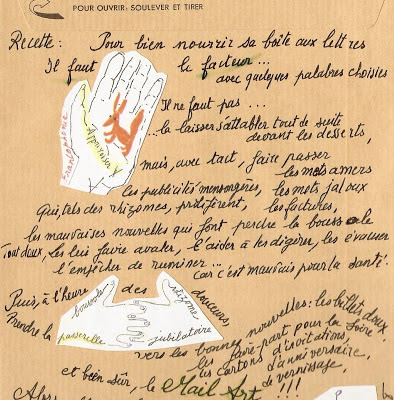 POUR OUVRIR: SOULEVER ET TIRER
Recette: Pour bien nourrir sa boîte aux lettres
Il faut apprivoiser le facteur...
avec quelques palabres choisies
Il ne faut pas...
... le laisser s'attabler tout de suite
devant les desserts,
mais, avec tact, faire passer
les mots amers
les publicités mensongères, les mots jaloux
Qui, tels des rhizomes, prolifèrent, les factures,
les mauvaises nouvelles qui font perdre la boussole
Tout doux, les lui faire avaler, l'aider à les digérer, les évacuer
l'empêcher de ruminer... car c'est mauvais pour la santé!
Puis, à l'heure des douceurs,
boussole
rhizome
Prendre la passerelle jubilatoire
vers les bonnes nouvelles: les billets doux
les faire part pour la foire
les cartons d'invitations,
d'anniversaire,
de vernissage,
et bien sûr, le Mail Art !!!
Alors
P